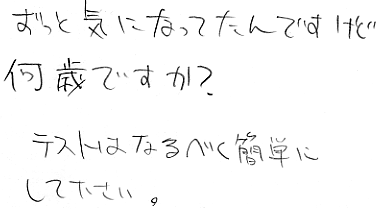 ずっと気になってたんですけど
何歳ですか?
テストはなるべく簡単に
してださい。